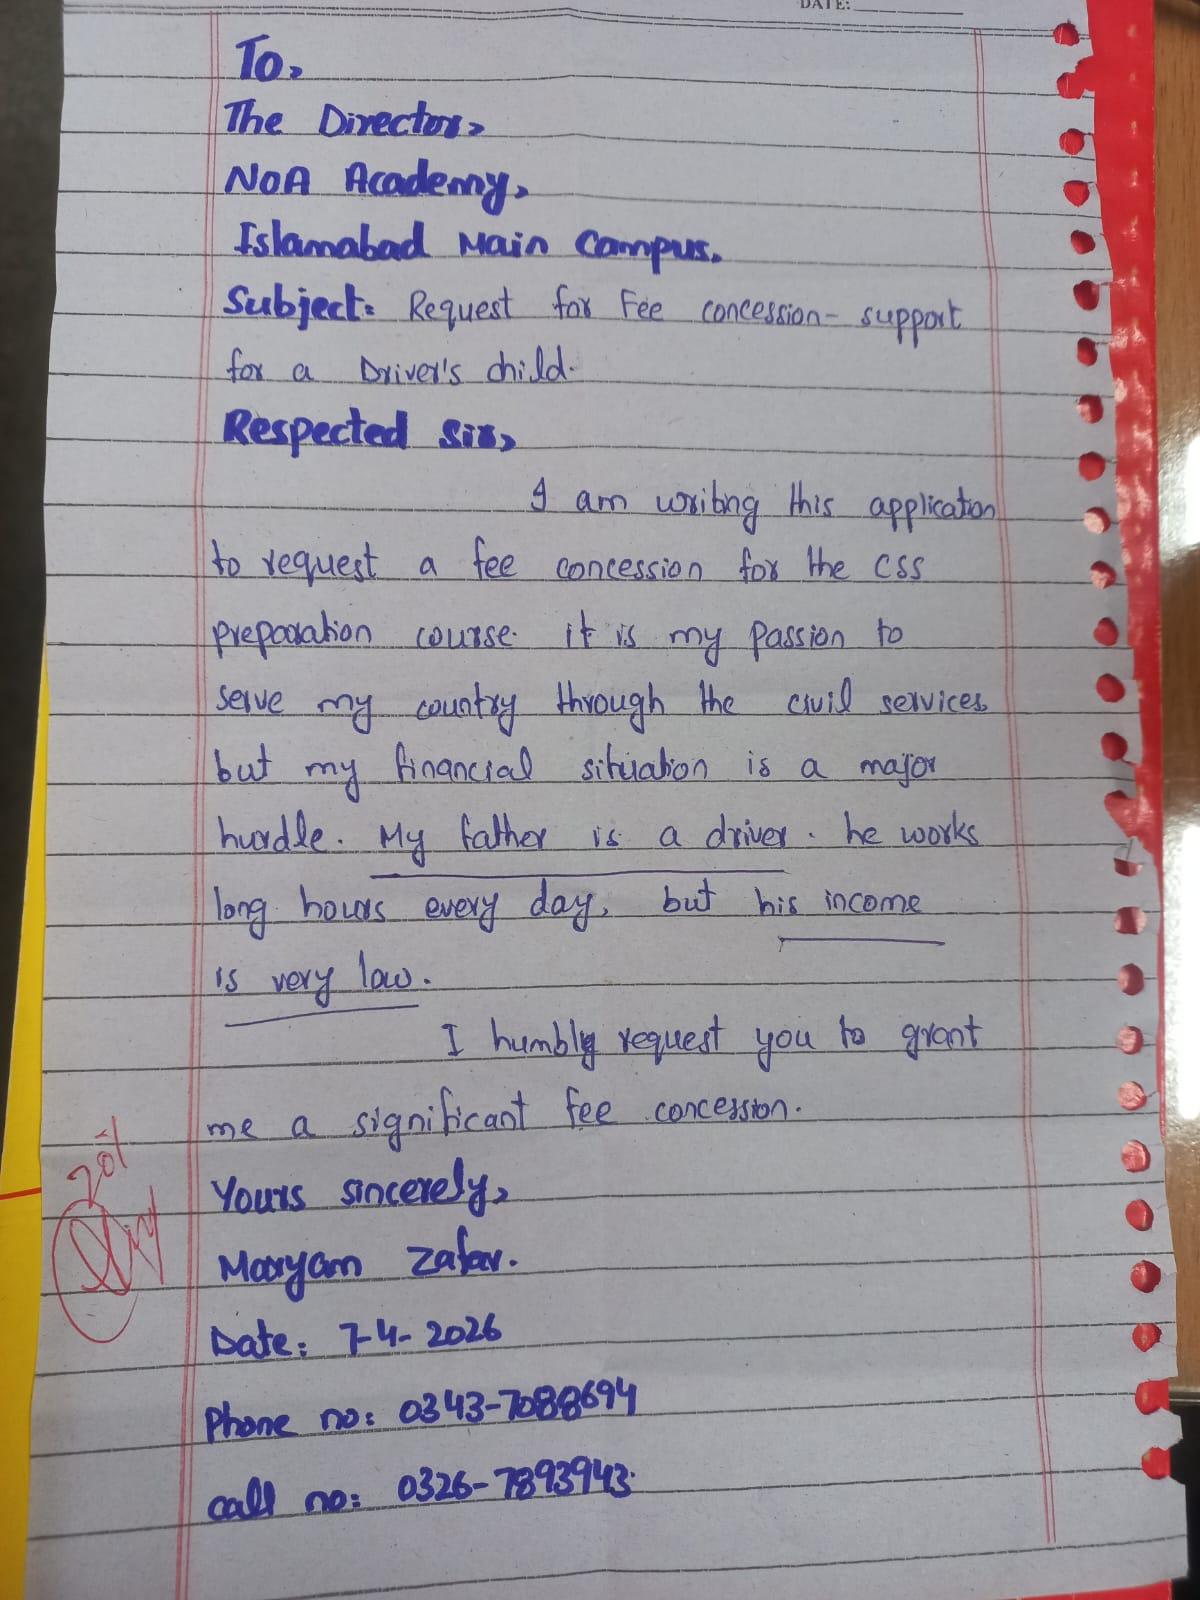 DATE:
To,
The Director,
NOA Academy,
Islamabad Main Campus.
Subject: Request for Fee concession- support
for a Driver's child.
Respected Sir,
I am writing this application
to request a fee concession for the CSS
preparation course. it is my passion to
serve my country through the civil services
but my financial situation is a major
hurdle. My father is a driver. he works
long hours every day, but his income
is very law.
I humbly request you to grant
me a significant fee concession.
20%
Yours sincerely,
Maryam Zafar.
Date: 7-4-2026
Phone no: 0343-7088694
call no: 0326-7893943.